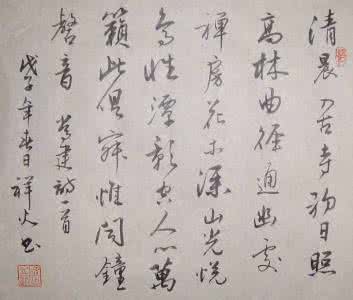 清晨入古寺初日照
高林曲徑通幽處
禪房花木深山光悦
鳥性潭影空人心萬
籟此俱寂惟聞鐘
磬音 常建詩一首
戊子年春日祥火书